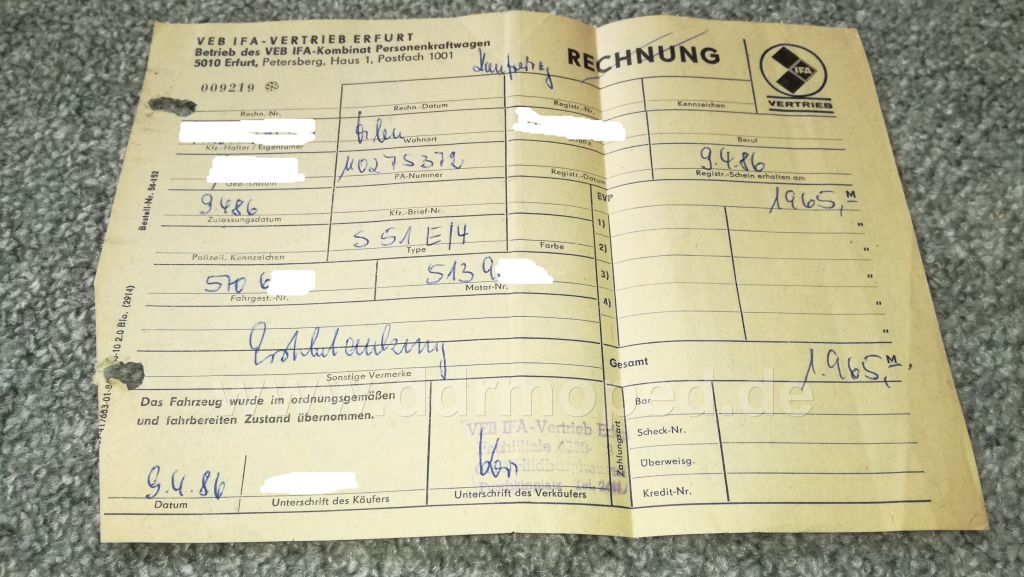 VEB IFA-VERTRIEB ERFURT
Betrieb des VEB IFA-Kombinat Personenkraftwagen
5010 Erfurt, Petersberg, Haus 1, Postfach 1001
RECHNUNG
IFA
VERTRIEB
009219
Rechn.-Nr.
Rechn.-Datum
Registr.-Nr.
Kennzeichen
Kfz.-Halter / Eigentümer
Wohnort
Beruf
M0275372
9.4.86
Geb.-Datum
PA-Nummer
Registr.-Datum
Registr.-Schein erhalten am
9.4.86
EVP
1965,- M
Zulassungsdatum
Kfz.-Brief-Nr.
1)
"
S 51 E/4
2)
"
Polizeil. Kennzeichen
Type
Farbe
570 6
513 9.
3)
"
Fahrgest.-Nr.
Motor-Nr.
4)
"
"
Erstbetankung
Gesamt
1.965,- M
Sonstige Vermerke
www.ddrmoped.de
Das Fahrzeug wurde im ordnungsgemäßen
und fahrbereiten Zustand übernommen.
Bar
VEB IFA-Vertrieb
Scheck-Nr.
Fachfiliale
Zahlungsart
Überweisg.
9.4.86
Kredit-Nr.
Datum
Unterschrift des Käufers
Unterschrift des Verkäufers
Bestell-Nr. 56452